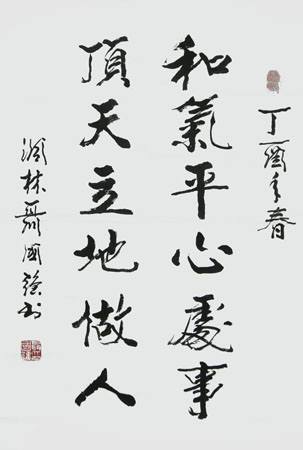 丁酉年春
和氣平心處事
頂天立地做人
林聶國強书